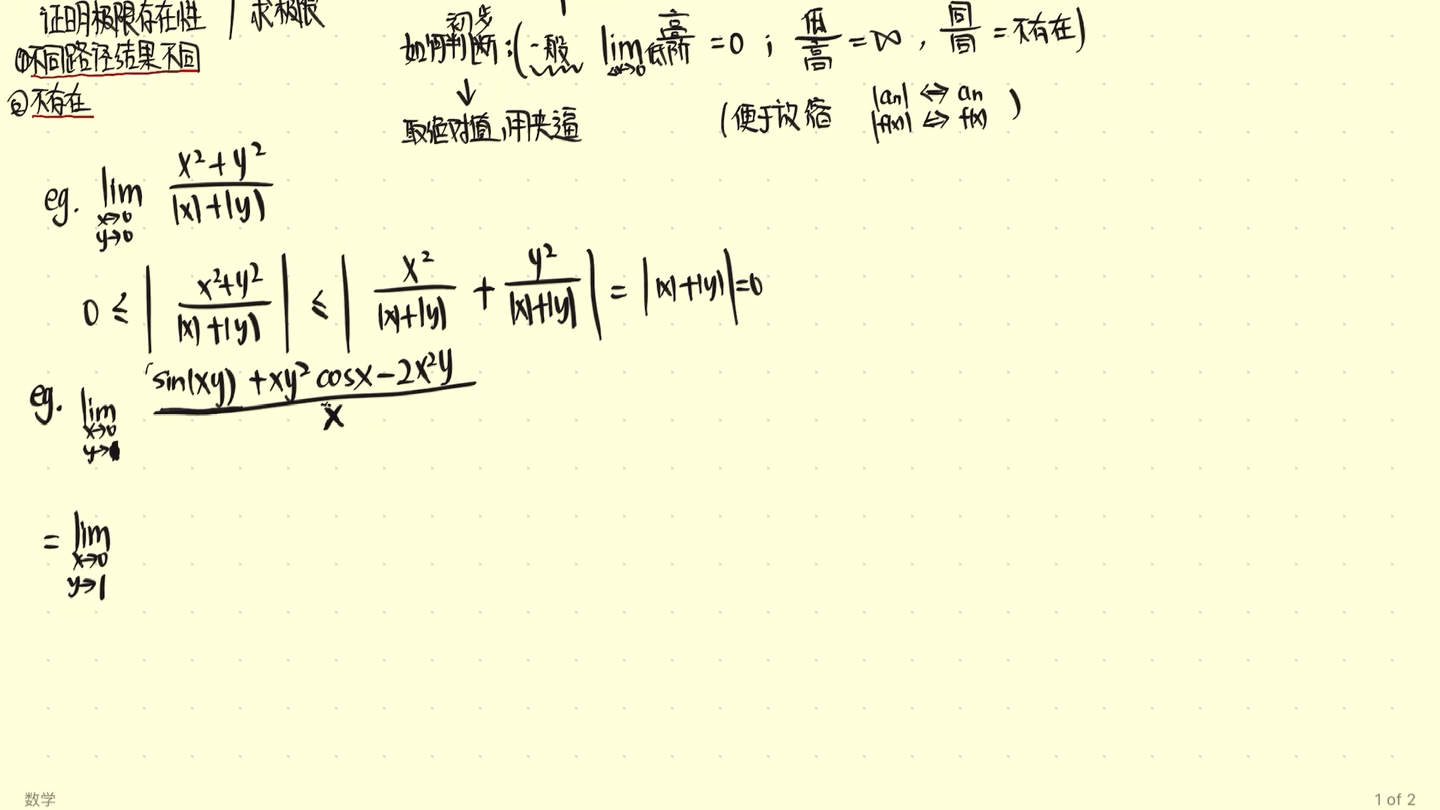 证明极限存在性 | 求极限
①不同路径结果不同
②不存在
初步
如何判断:(一般 lim x→0 高阶/低阶 = 0 ; 低/高 = ∞ , 同/同 = 不存在)
↓
取绝对值,用夹逼 (便于放缩 |an| ⇔ an |f(x)| ⇔ f(x) )
eg. lim x→0 y→0 (x²+y²)/(|x|+|y|)
0 ≤ |(x²+y²)/(|x|+|y|)| ≤ |x²/(|x|+|y|) + y²/(|x|+|y|)| = ||x|+|y||=0
eg. lim x→0 y→1 (sin(xy) + xy² cosx − 2x²y)/x
= lim x→0 y→1
数学
1 of 2